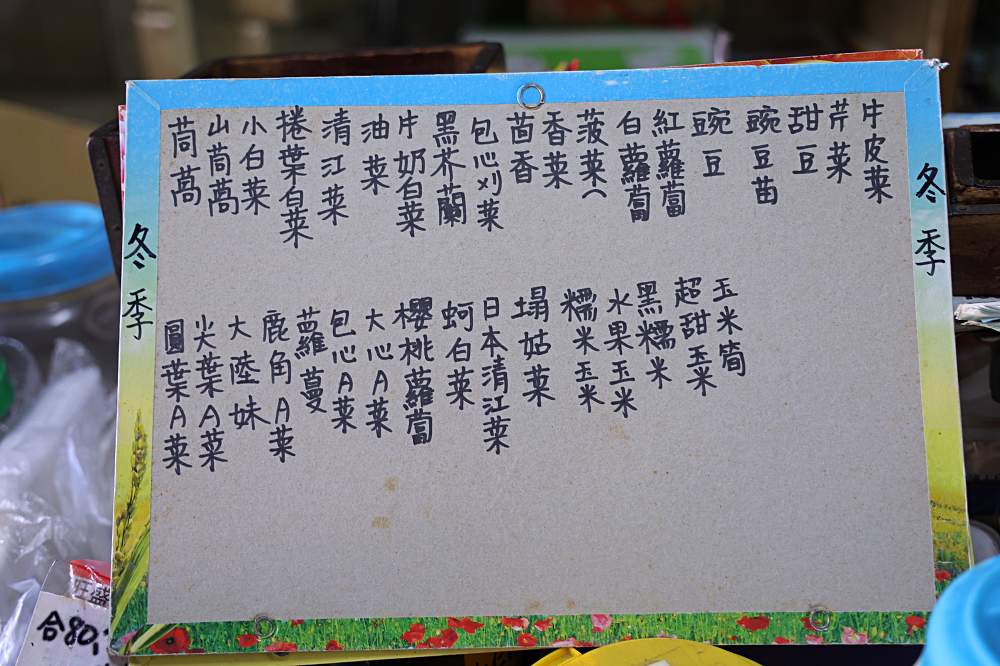 冬季
牛皮菜
芹菜
甜豆
豌豆苗
豌豆
紅蘿蔔
白蘿蔔
菠菜へ
香菜
茴香
包心刈菜
黑芥蘭
牛奶白菜
油菜
清江菜
捲葉白菜
小白菜
山茼蒿
茼蒿
玉米筒
超甜玉米
黑糯米
水果玉米
糯米玉米
塌姑菜
日本清江菜
蚵白菜
櫻桃蘿蔔
大心A菜
包心A菜
蘿蔓
鹿角A菜
大陸妹
尖葉A菜
圓葉A菜
冬季
旺盛
合80